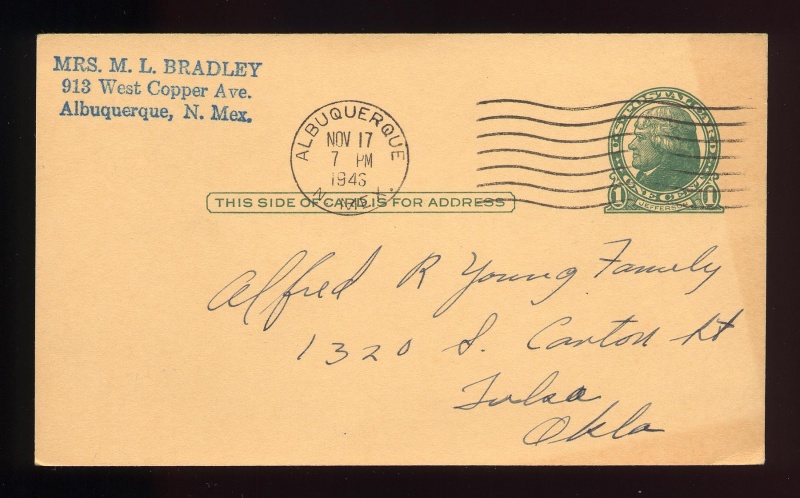 MRS. M. L. BRADLEY
913 West Copper Ave.
Albuquerque, N. Mex.
ALBUQUERQUE
NOV 17
7 PM
1946
N. MEX.
U.S. POSTAL CARD
1 ONE CENT 1
JEFFERSON
THIS SIDE OF CARD IS FOR ADDRESS
Alfred R Young Family
1320 S. Canton
Tulsa
Okla